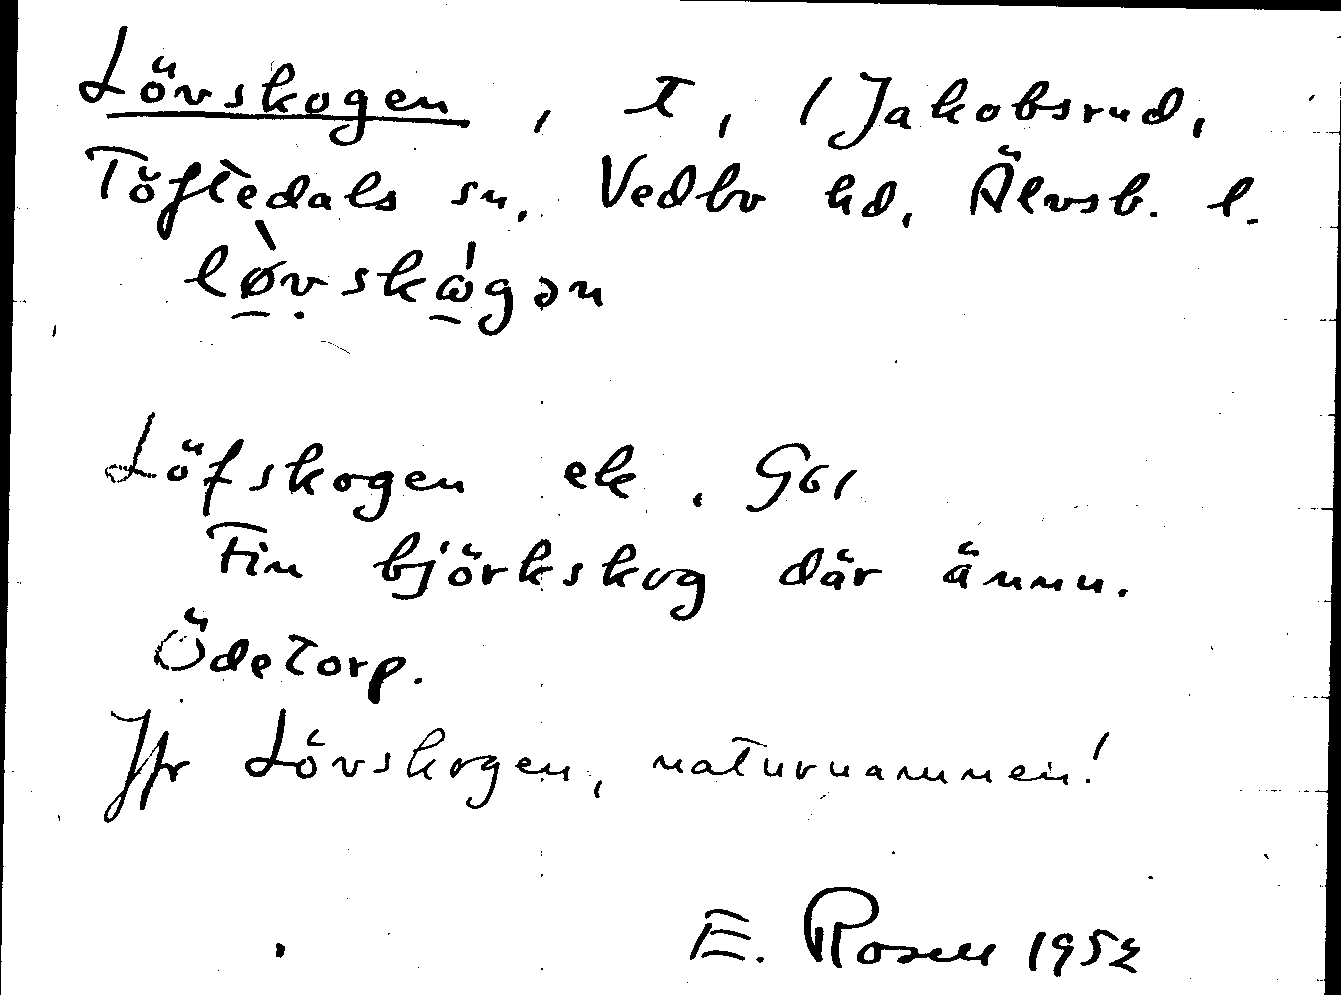 Lövskogen, t, 1 Jakobsrud,
Töftedals sn, Vedbo hd, Älvsb. l.
lø̱̀ṿskώ̱gən
Löfskogen ek. G61
Fin björkskog där ännu.
Ödetorp.
Jfr Lövskogen, naturnamnen!
E. Rosell 1952